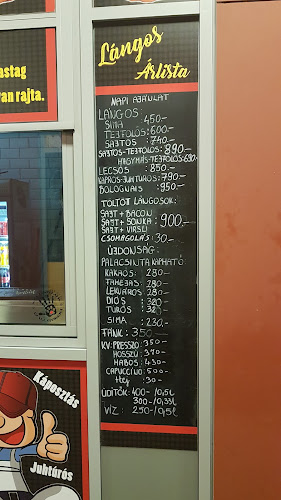 Lángos
Árlista
astag
van rajta.
NAPI AJÁNLAT
LÁNGOS
SIMA 450.-
TEJFÖLÖS: 600.-
SAJTOS: 740.-
SAJTOS-TEJFÖLÖS: 890.-
HAGYMÁS-TEJFÖLÖS: 690.-
LECSÓS: 850.-
KAPROS-JUHTÚRÓS: 790.-
BOLOGNAIS: 950.-
TÖLTÖTT LÁNGOSOK:
SAJT + BACON
SAJT + SONKA : 900.-
SAJT + VIRSLI
CSOMAGOLÁS: 30.-
ÚJDONSÁG:
PALACSINTA KAPHATÓ:
KAKAÓS: 280.-
FAHÉJAS: 280.-
LEKVÁROS: 280.-
DIÓS :
TÚRÓS :
SIMA : 230.-
FÁNK : 350.-
KV: PRESSZÓ: 350.-
HOSSZÚ: 370.-
HABOS: 430.-
CAPUCCINO: 500.-
TEJ : 30.-
ÜDÍTŐK: 400.-/0,5L
300.-/0,33L
VÍZ: 250.-/0,5L
Káposztás
Juhtúrós